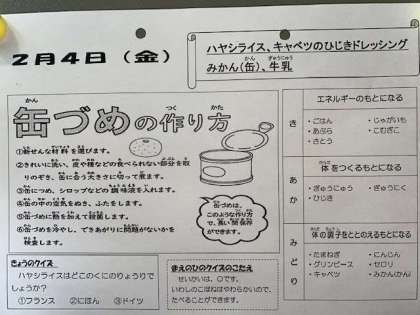 2月4日（金）
ハヤシライス、キャベツのひじきドレッシング
みかん(缶)、牛乳
缶づめの作り方
①新せんな材料を選びます。
②きれいに洗い、皮や種などの食べられない部分を取
りのぞき、缶に合う大きさに切って煮ます。
③缶につめ、シロップなどの調味液を入れます。
④缶の中の空気をぬき、ふたをします。
⑤缶づめに熱を加えて殺菌します。
⑥缶づめを冷やし、できあがりに問題がないかを
検査します。
缶づめは、
このような作り方
で、長い間保存
ができます。
きょうのクイズ
ハヤシライスはどこのくにのりょうりで
しょうか？
①フランス ②にほん ③ドイツ
まえのひのクイズのこたえ
せいかいは、〇です。
いわしのこほねはやわらかいので、
たべることができます。
エネルギーのもとになる
き
・ごはん ・じゃがいも
・あぶら ・こむぎこ
・さとう
体をつくるもとになる
あか
・ぎゅうにゅう ・ぎゅうにく
・ひじき
体の調子をととのえるもとになる
みどり
・たまねぎ ・にんじん
・グリンピース ・セロリ
・キャベツ ・みかん(かん)